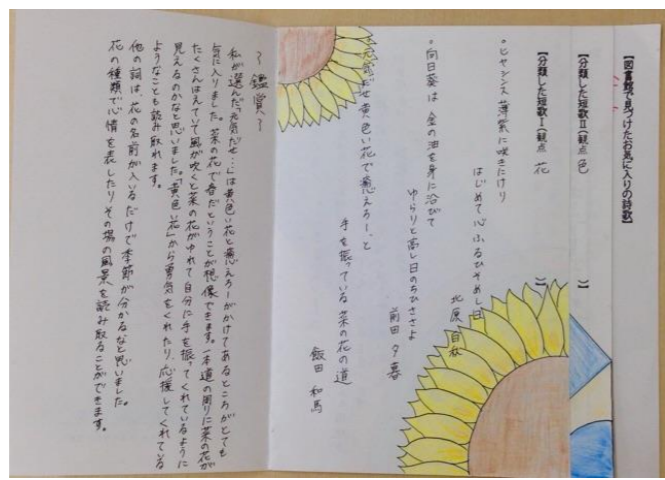 【図書館で見つけたお気に入りの詩歌】
【分類した短歌Ⅱ(観点 色 )】
【分類した短歌Ⅰ(観点 花 )】
・ヒヤシンス薄紫に咲きにけり
はじめて心ふるひそめし日
北原白秋
・向日葵は金の油を身に浴びて
ゆらりと高し日のちひささよ
前田夕暮
・元気だせ黄色い花で癒えろー、と
手を振っている菜の花の道
飯田和馬
~鑑賞~
私が選んだ「元気だせ…」は黄色い花と癒えろーがかけてあるところがとても
気に入りました。菜の花で春だということが想像できます。一本道の周りに菜の花が
たくさんはえていて風が吹くと菜の花がゆれて自分に手を振ってくれているように
見えるのかなと思いました。「黄色い花」から勇気をくれたり、応援してくれている
ようなことも読み取れます。
他の詞は、花の名前が入いるだけで季節が分かるなと思いました。
花の種類で心情を表したりその場の風景を読み取ることができます。